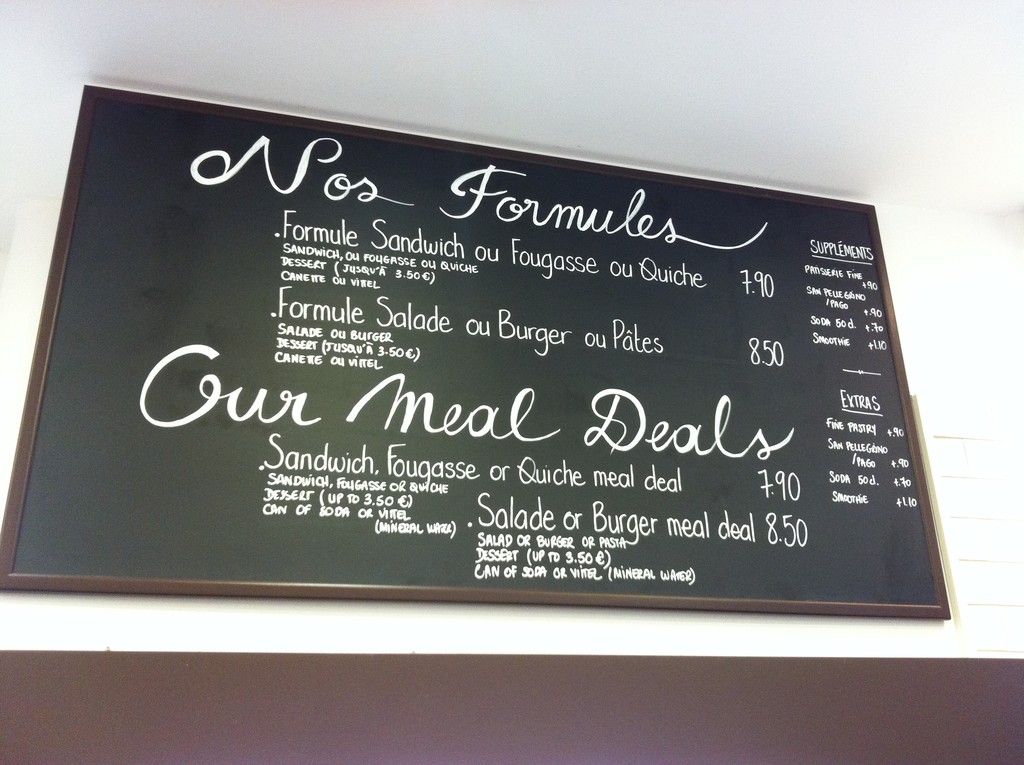 Nos Formules
.Formule Sandwich ou Fougasse ou Quiche 7.90
SANDWICH, OU FOUGASSE OU QUICHE
DESSERT (JUSQU'À 3.50€)
CANETTE OU VITTEL
.Formule Salade ou Burger ou Pâtes 8.50
SALADE OU BURGER
DESSERT (JUSQU'À 3.50€)
CANETTE OU VITTEL
Our Meal Deals
.Sandwich, Fougasse or Quiche meal deal 7.90
SANDWICH, FOUGASSE OR QUICHE
DESSERT (UP TO 3.50 €)
CAN OF SODA OR VITTEL
(MINERAL WATER)
.Salade or Burger meal deal 8.50
SALAD OR BURGER OR PASTA
DESSERT (UP TO 3.50 €)
CAN OF SODA OR VITTEL (MINERAL WATER)
SUPPLÉMENTS
PATISSERIE FINE
+.90
SAN PELLEGRINO
/PAGO
+.90
SODA 50 cl. +.70
SMOOTHIE +1.10
EXTRAS
FINE PASTRY +.90
SAN PELLEGRINO
/PAGO +.90
SODA 50cl. +.70
SMOOTHIE +1.10